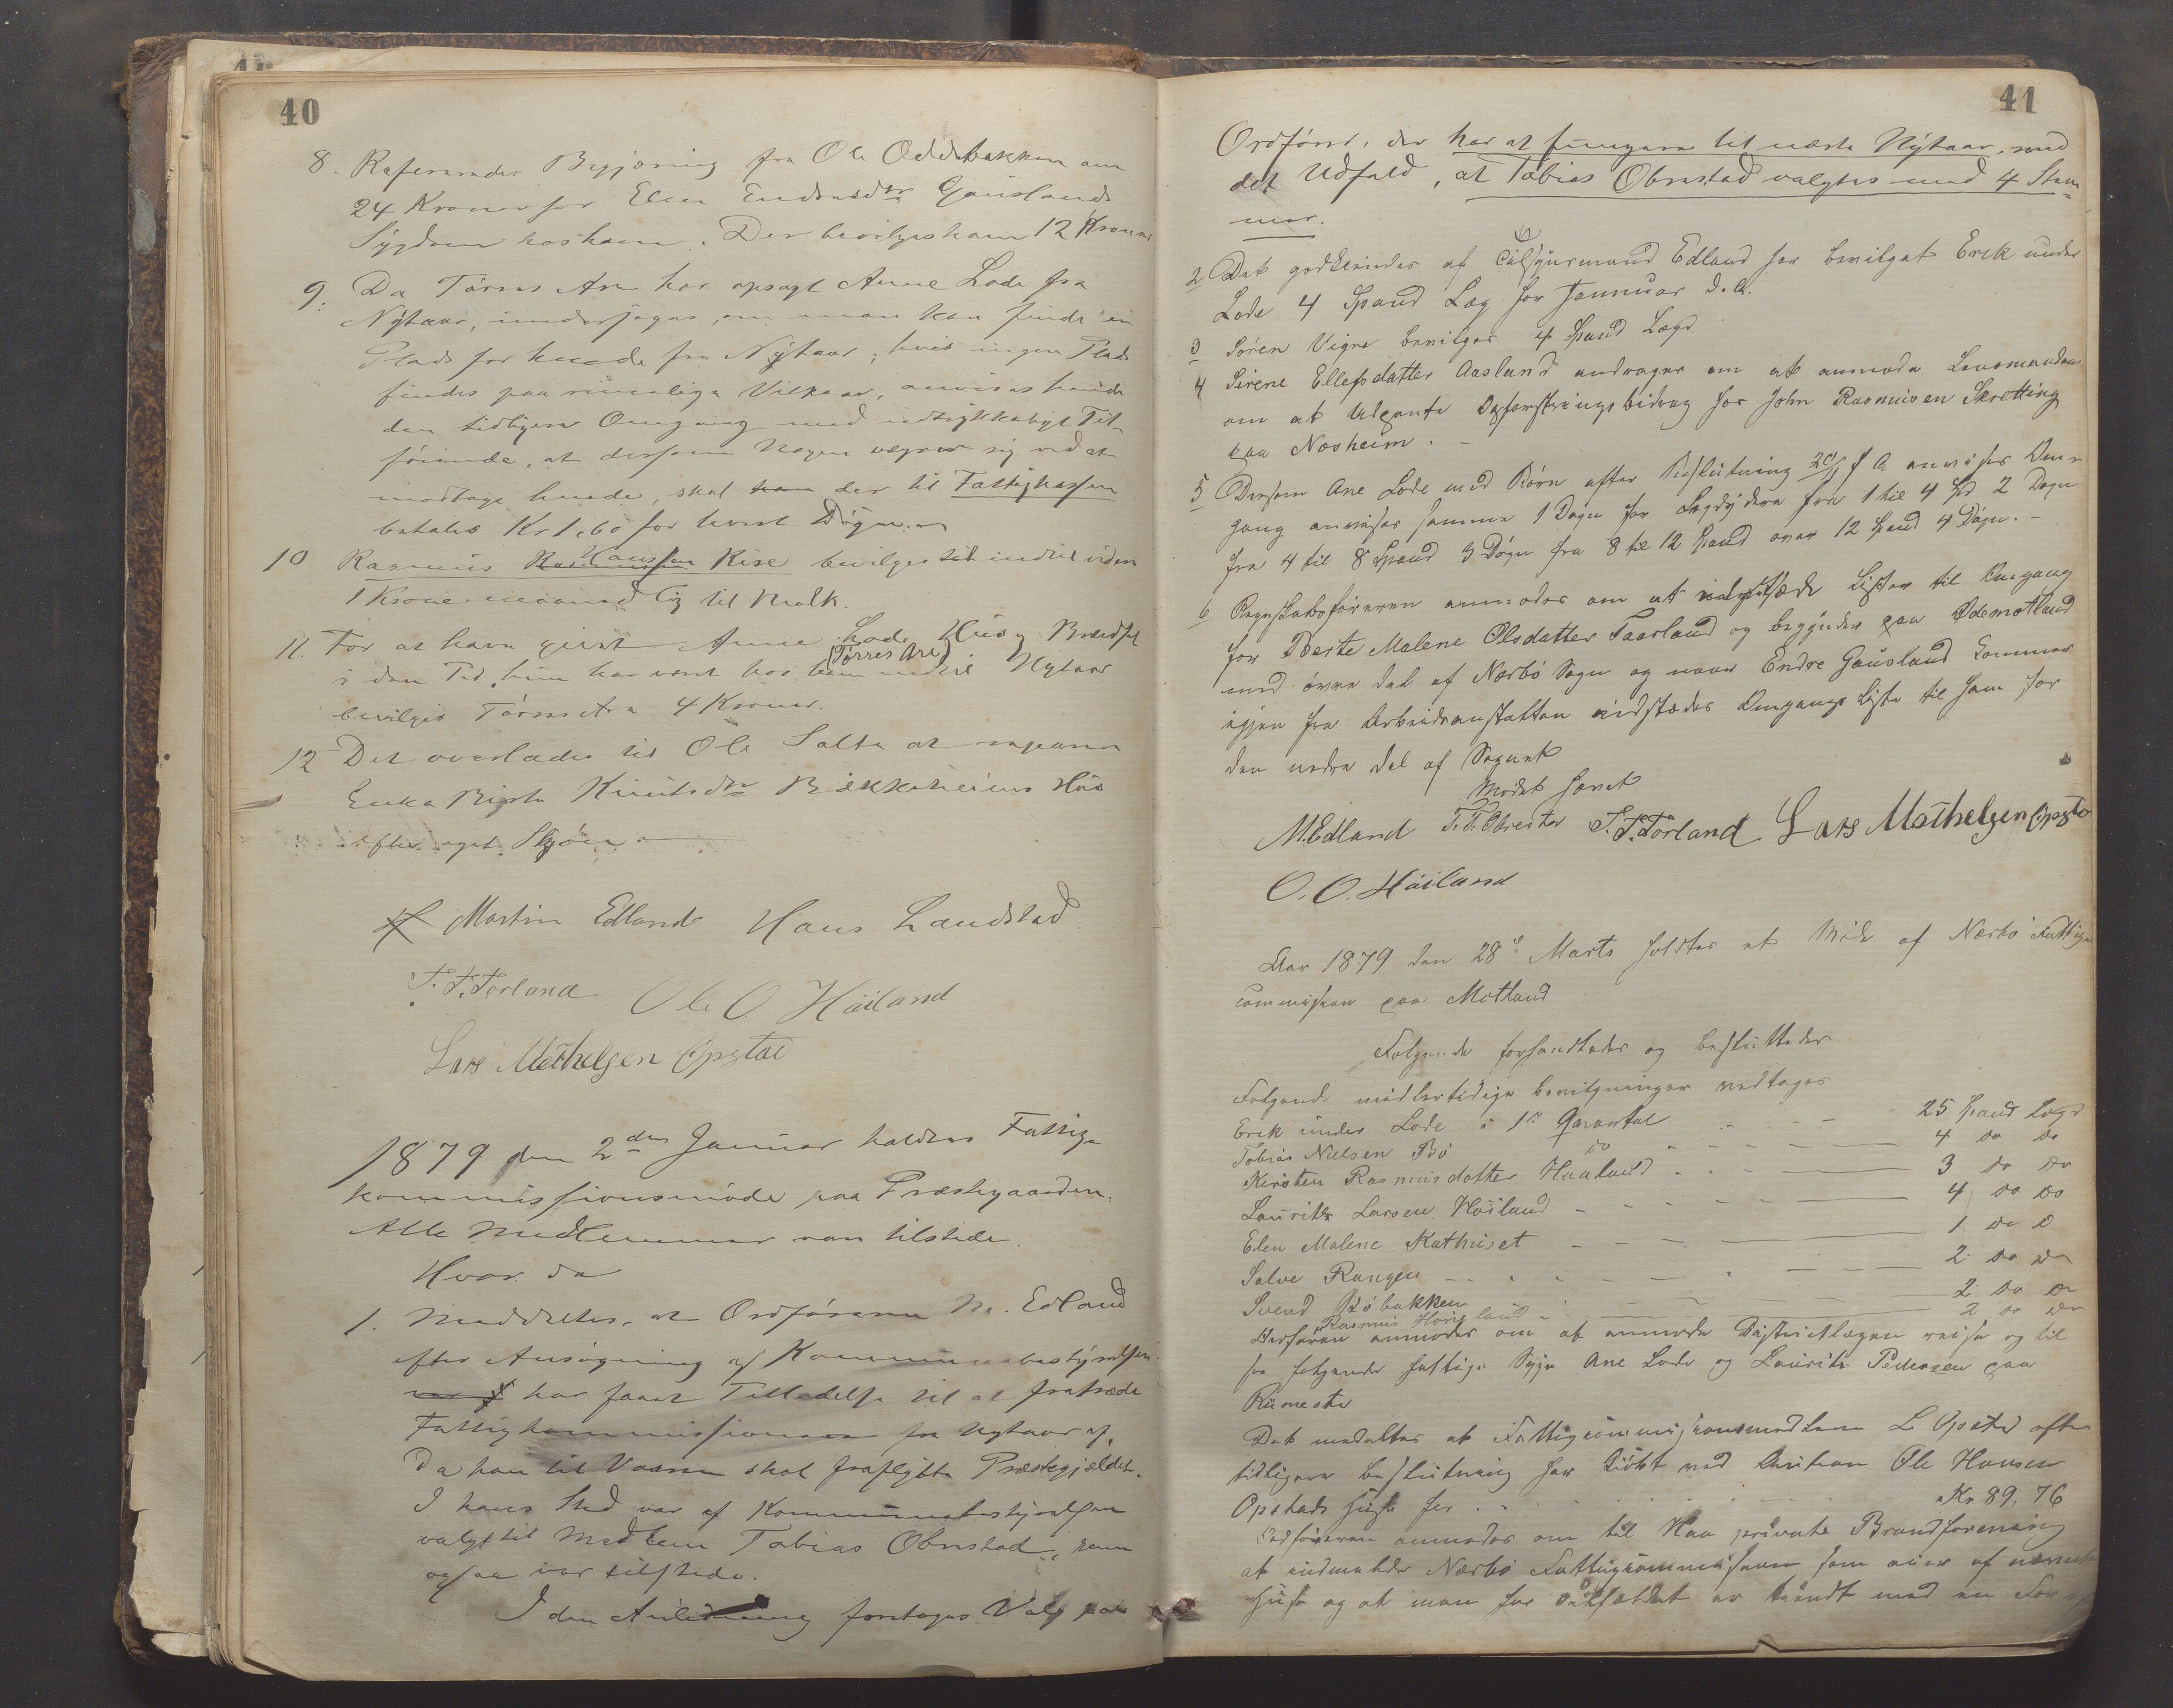 40
8. Refereredes Begjæring fra Ole Oddsbakken om
24 Kroner for Elen Endresdtr Gauslands
Sygdom hos ham. Der bevilges ham 12 Kroner
9. Da Tørres Are har opsagt Anne Lode fra
Nytaar, undersøges, om man kan finde en
Plads for hende fra Nytaar; hvis ingen Plads
findes paa rimelige Vilkaar, anvises hende
den tidligere Omgang med udtrykkeligt Til-
føiende, at dersom Nogen vægrer sig ved at
modtage hende, skal han der til Fattigkassen
betales Kr 1,60 for hvert Døgn.
10 Rasmus Rise bevilges indtil videre
1 Krone maanedlig til Melk.
11. For at have givet Anne Lode Huus og Brændsel
i den Tid hun har været hos ham (Tørres Are) indtil Nytaar
bevilges Tørres Are 4 Kroner.
12 Det overlades til Ole Salte at reparere
Enke Birgta Knutsdtr Bækkeheiens Hus
efter eget Skjøn.
Martin Edland Hans Landstad
T. T. Torland Ole O. Høiland
Lars Methelsen Opstad
1879 den 2den Januar holdtes Fattig-
kommissionsmøde paa Præstegaarden.
Alle Medlemmer var tilstede.
Hvor da
1. Meddeltes, at Ordføreren M. Edland
efter Ansøgning af Kommunebestyrelsen
har faaet Tilladelse til at fratræde
Fattigkommissionen fra Nytaar af,
da han til Vaaren skal fraflytte Præstegjældet.
I hans Sted var af Kommunebestyrelsen
valgt til Medlem Tobias Obrestad, som
ogsaa var tilstede.
I den Anledning foretoges Valg paa
41
Ordfører, der har at fungere til næste Nytaar, med
det Udfald, at Tobias Obrestad valgtes med 4 Stem-
mer.
2 Det godkjendes at Tilsynsmand Edland har bevilget Erik under
Lode 4 Spand Læg for Januar d. A.
3 Søren Vigre bevilges 4 Spand Lægd
4 Serene Ellefsdatter Aasland andrager om at anmode Lensmanden
om at udpante Opfostringsbidrag hos John Rasmusen Skretting
paa Næsheim. –
5 Dersom Ane Lode med Børn efter Beslutning f A anvises Om-
gang anvises samme 1 Døgn for Lægdydere fra 1 til 4 Spd 2 Døgn
fra 4 til 8 Spand 3 Døgn fra 8 til 12 Spand over 12 Spand 4 Døgn. –
6 Regnskabsføreren anmodes om at udstæde Lister til Omgang
for Berte Malene Olsdatter Taarland og begynder paa Odemotland
med øvre del af Nærbø Sogn og naar Endre Gausland kommer
igjen fra Arbeidsanstalten udstædes Omgangs Liste til ham for
den nedre del af Sognet
Mødet hævet
M. Edland T. T. Obrestad T. T. Torland Lars Methelsen Opstad
O. O. Høiland
Aar 1879 den 28de Marts holdtes et Møde af Nærbø Fattig
commission paa Motland
Følgende forhandledes og besluttedes
Følgende midlertidige bevilgninger vedtages
Erik under Lode i 1ste Qvartal 25 Spand Lægd
Tobias Nielsen Bø do 4 do do
Kirsten Rasmusdatter Haaland 3 do do
Laurits Larsen Høiland 4 do do
Elen Malene Kathuset 1 do do
Salve Rangen 2 do do
Svend Bøbakken 2 do do
Rasmus Høieland 2 do do
Ordføreren anmodes om at anmode Districtlægen reise og til
se følgende fattige Syge Ane Lode og Laurits Pedersen paa
Rumestø
Det meddeltes at Fattigcommissionsmedlem L Opstad efter
tidligere beslutning har kjøbt ved Auction Ole Hansen
Opstads Huse for Kr 89,76
Ordføreren anmodes om til Haa private Brandforening
at indmelde Nærbø Fattigcommission som eier af nævnte
Huse og at man har